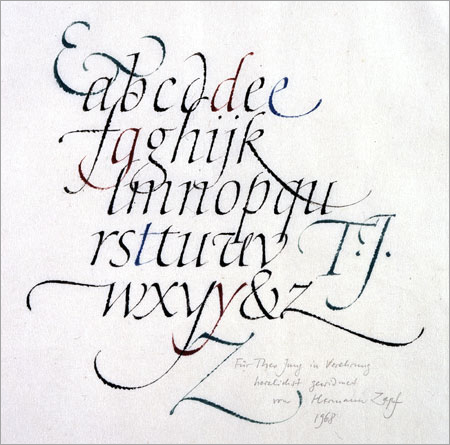 E
abcddee
fgghijk
lmnnopqu
rsttuvwv T.J.
wxyy&z
Z
Für Theo Jung in Verehrung
herzlichst gewidmet
von Hermann Zapf
1968